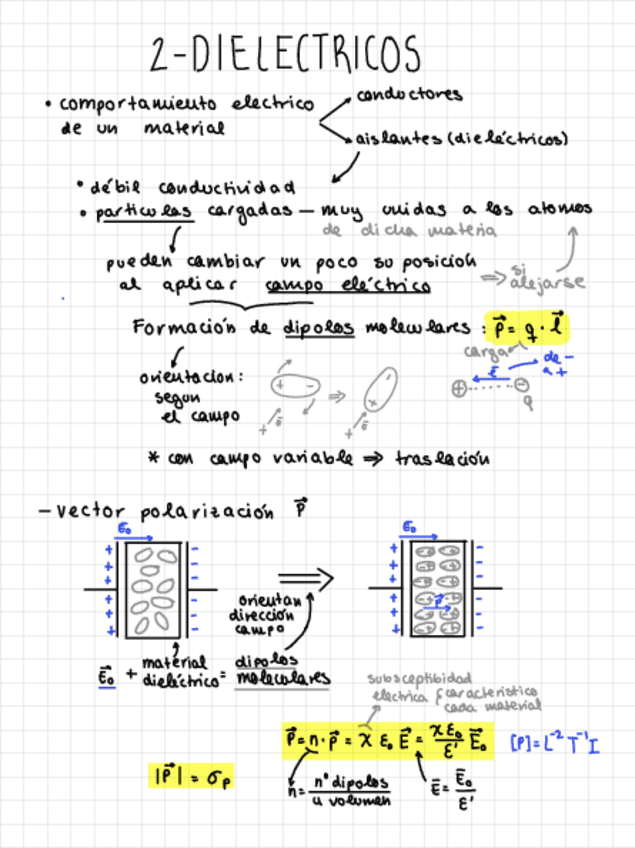 2-DIELECTRICOS
• comportamiento electrico
de un material
conductores
aislantes (dieléctricos)
• débil conductividad
• particulas cargadas — muy unidas a los atomos
de dicha materia
pueden cambiar un poco su posición
al aplicar campo eléctrico
⇒ si
alejarse
Formación de dipolos moleculares : p⃗ = q · l⃗
carga
de -
a +
+ -
q
orientacion:
segun
el campo
+ -
⇒
+ E⃗
+ E⃗
* con campo variable ⇒ traslación
- vector polarización P⃗
E₀
E₀
⇒
orientan
dirección
campo
P⃗
E⃗₀ + material dieléctrico = dipolos moleculares
subsceptibidad
electrica { caracteristico
cada material
P⃗ = n · p⃗ = χ ε₀ E⃗ = χε₀/ε' E⃗₀
[P] = L⁻² T⁻¹ I
|P⃗| = σp
n = nº dipolos / u volumen
E⃗ = E⃗₀/ε'